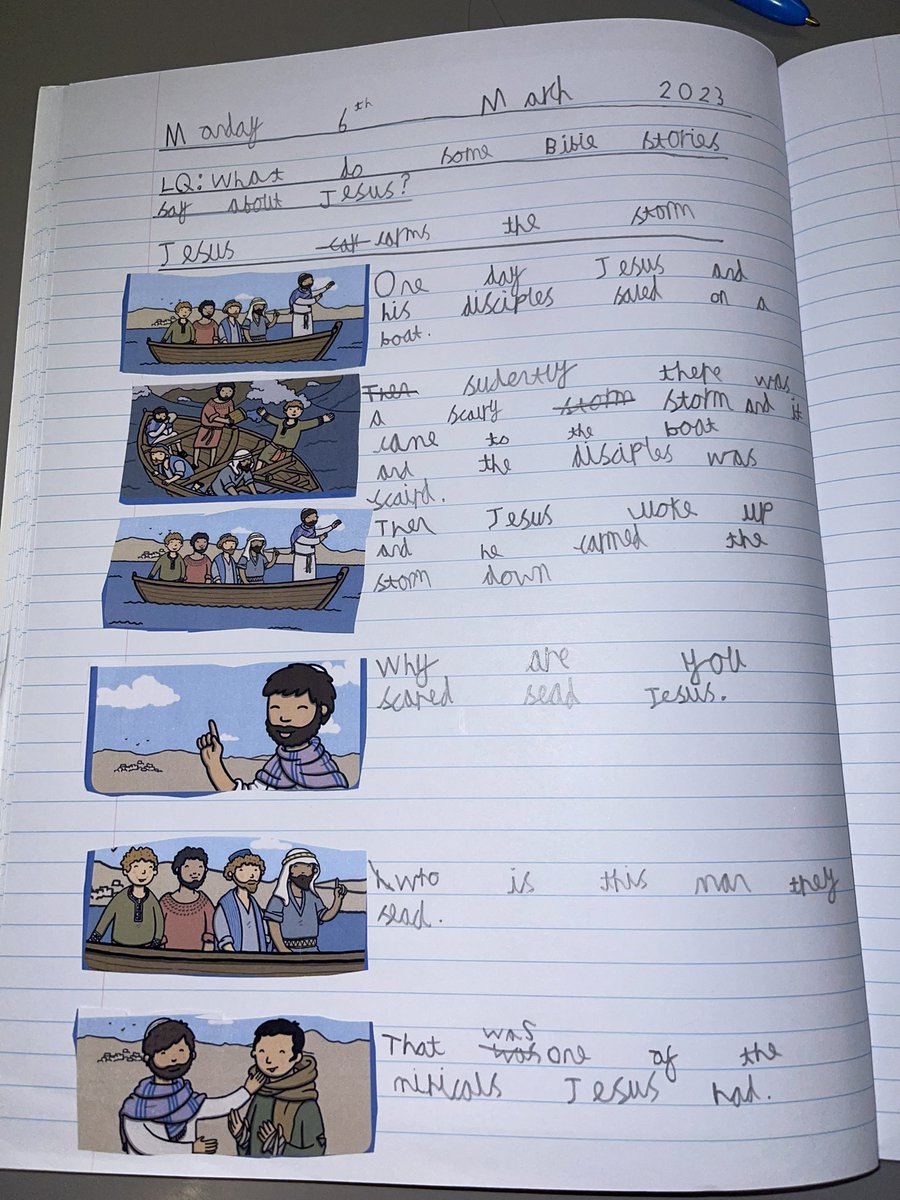 Monday 6th March 2023
LQ: What do some Bible stories
say about Jesus?
Jesus carms the storm
One day Jesus and
his disciples saled on a
boat.
Then sudently there was
a scairy storm storm and it
came to the boat
and the disciples was
scaird.
Then Jesus woke up
and he carmed the
storm down
Why are you
scared sead Jesus.
is this man they
sead.
That was
was one of the
miricals Jesus had.